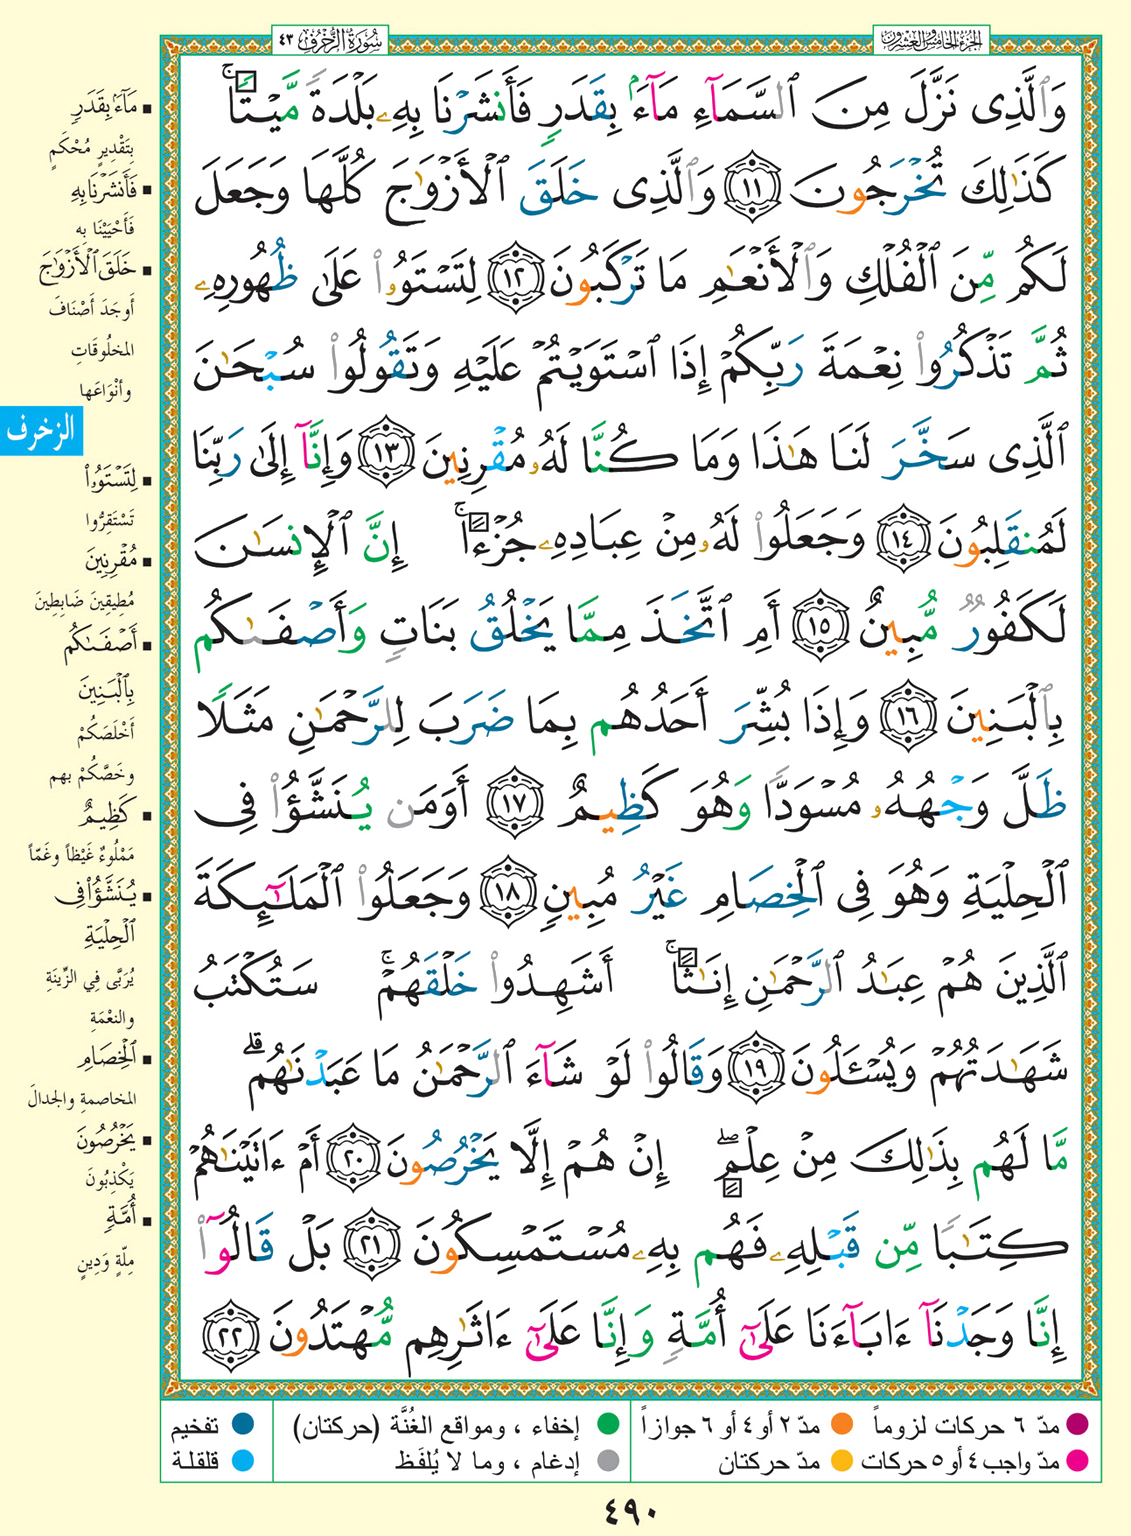 الجزء الخامس والعشرون
سُورَةُ الزُّخْرُفِ ٤٣
وَٱلَّذِى نَزَّلَ مِنَ ٱلسَّمَآءِ مَآءًۢ بِقَدَرٍ فَأَنشَرْنَا بِهِۦ بَلْدَةً مَّيْتًا ۚ
كَذَٰلِكَ تُخْرَجُونَ ١١ وَٱلَّذِى خَلَقَ ٱلْأَزْوَٰجَ كُلَّهَا وَجَعَلَ
لَكُم مِّنَ ٱلْفُلْكِ وَٱلْأَنْعَٰمِ مَا تَرْكَبُونَ ١٢ لِتَسْتَوُۥا۟ عَلَىٰ ظُهُورِهِۦ
ثُمَّ تَذْكُرُوا۟ نِعْمَةَ رَبِّكُمْ إِذَا ٱسْتَوَيْتُمْ عَلَيْهِ وَتَقُولُوا۟ سُبْحَٰنَ
ٱلَّذِى سَخَّرَ لَنَا هَٰذَا وَمَا كُنَّا لَهُۥ مُقْرِنِينَ ١٣ وَإِنَّآ إِلَىٰ رَبِّنَا
لَمُنقَلِبُونَ ١٤ وَجَعَلُوا۟ لَهُۥ مِنْ عِبَادِهِۦ جُزْءًا ۚ إِنَّ ٱلْإِنسَٰنَ
لَكَفُورٌ مُّبِينٌ ١٥ أَمِ ٱتَّخَذَ مِمَّا يَخْلُقُ بَنَاتٍ وَأَصْفَىٰكُم
بِٱلْبَنِينَ ١٦ وَإِذَا بُشِّرَ أَحَدُهُم بِمَا ضَرَبَ لِلرَّحْمَٰنِ مَثَلًا
ظَلَّ وَجْهُهُۥ مُسْوَدًّا وَهُوَ كَظِيمٌ ١٧ أَوَمَن يُنَشَّؤُا۟ فِى
ٱلْحِلْيَةِ وَهُوَ فِى ٱلْخِصَامِ غَيْرُ مُبِينٍ ١٨ وَجَعَلُوا۟ ٱلْمَلَٰٓئِكَةَ
ٱلَّذِينَ هُمْ عِبَٰدُ ٱلرَّحْمَٰنِ إِنَٰثًا ۚ أَشَهِدُوا۟ خَلْقَهُمْ ۚ سَتُكْتَبُ
شَهَٰدَتُهُمْ وَيُسْـَٔلُونَ ١٩ وَقَالُوا۟ لَوْ شَآءَ ٱلرَّحْمَٰنُ مَا عَبَدْنَٰهُم ۗ
مَّا لَهُم بِذَٰلِكَ مِنْ عِلْمٍ ۖ إِنْ هُمْ إِلَّا يَخْرُصُونَ ٢٠ أَمْ ءَاتَيْنَٰهُمْ
كِتَٰبًا مِّن قَبْلِهِۦ فَهُم بِهِۦ مُسْتَمْسِكُونَ ٢١ بَلْ قَالُوٓا۟
إِنَّا وَجَدْنَآ ءَابَآءَنَا عَلَىٰٓ أُمَّةٍ وَإِنَّا عَلَىٰٓ ءَاثَٰرِهِم مُّهْتَدُونَ ٢٢
مَآءً بِقَدَرٍ
بِتَقْدِيرٍ مُحْكَمٍ
فَأَنشَرْنَا بِهِ
فَأَحْيَيْنَا به
خَلَقَ ٱلْأَزْوَٰجَ
أَوجَدَ أَصْنَافَ
المخلُوقَاتِ
وأَنْوَاعَها
الزخرف
لِتَسْتَوُۥا۟
تَسْتَقِرُّوا
مُقْرِنِينَ
مُطِيقِينَ ضَابِطِينَ
أَصْفَىٰكُم
بِالْبَنِينَ
أَخْلَصَكُمْ
وخَصَّكُمْ بهم
كَظِيمٌ
مَمْلُوءٌ غَيْظاً وغَمّاً
يُنَشَّؤُا۟ فِى
ٱلْحِلْيَةِ
يُرَبَّى فِي الزِّينَةِ
والنعْمَةِ
ٱلْخِصَامِ
المخاصمةِ والجدالَ
يَخْرُصُونَ
يَكْذِبُونَ
أُمَّةٍ
مِلّةٍ وَدِينٍ
مدّ ٦ حركات لزوماً مدّ ٢ أو ٤ أو ٦ جوازاً إخفاء ، ومواقع الغُنَّة (حركتان) تفخيم
مدّ واجب ٤ أو ٥ حركات مدّ حركتان إدغام ، وما لا يُلفَظ قلقلة
٤٩٠